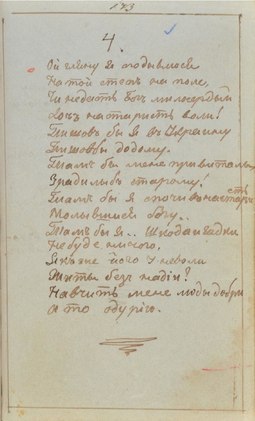 173
4.
Ой гляну я подывлюся
На той степъ на поле,
Чи недастъ Богъ милосердый
Хочъ на старисть воли!
Пишовъ бы я въ Украину
Пишовъ бы додому.
Тамъ бы мене привиталы
Зрадилибъ старому!
Тамъ бы я спочивъ
Молывшися Богу.
Тамъ бы я.. Шкода й гадки
Не буде ничого.
Якъ же його у неволи
Жыты безъ надіи?
Навчить мене люды добри
А то одурію.